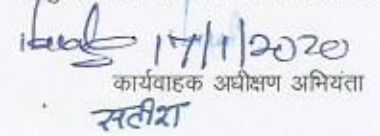 17/1/2020
कार्यवाहक अधीक्षण अभियंता
सतीश